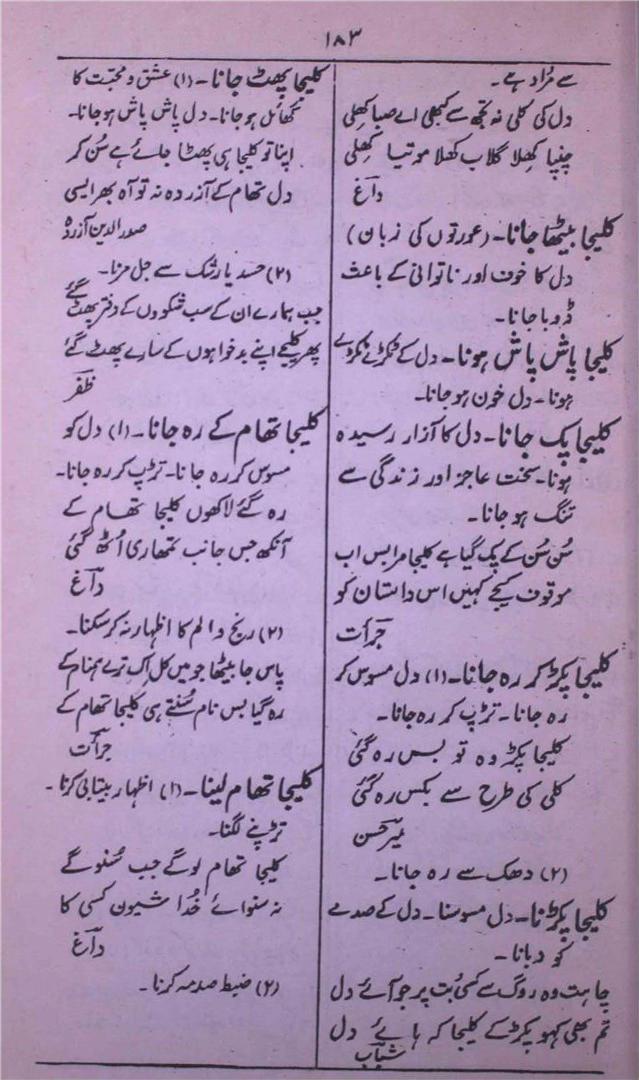 ۱۸۳
سے مُراد ہے۔
دل کی کلی نہ تجھ سے کبھی اے صبا کھلی
چنپا کھِلا گلاب کھلا موتیا کھِلی
داغؔ
کلیجا بیٹھا جانا۔ (عورتوں کی زبان)
دل کا خوف اور ناتوانی کے باعث
ڈوبا جانا۔
کلیجا پاش پاش ہونا۔ دل کے ٹکڑے ٹکڑے
ہونا۔ دل خون ہوجانا۔
کلیجا پک جانا۔ دل کا آزار رسیدہ
ہونا۔ سخت عاجز اور زندگی سے
تنگ ہو جانا۔
سُن سُن کے پک گیا ہے کلیجا مرا بس اب
موقوف کیجے کہیں اس داستان کو
جرأت
کلیجا پکڑ کر رہ جانا۔ (۱) دل مسوس کر
رہ جانا۔ تڑپ کر رہ جانا۔
کلیجا پکڑ وہ تو بس رہ گئی
کلی کی طرح سے بکس رہ گئی
میر حسن
(۲) دھک سے رہ جانا۔
کلیجا پکڑنا۔ دل مسوسنا۔ دل کے صدمے
کو دبانا۔
چاہت وہ روگ ہے کسی بُت پر جو آئے دل
تم بھی کہو پکڑ کے کلیجا کہ ہائے دل
شباب
کلیجا پھٹ جانا۔ (۱) عشق و محبّت کا
گھائل ہو جانا۔ دل پاش پاش ہو جانا۔
اپنا تو کلیجا ہی پھٹا جائے ہے سُن کر
دل تھام کے آزردہ نہ تو آہ بھر ایسی
صدر الدین آزردہ
(۲) حسد یا رشک سے جل مرنا۔
جب ہمارے ان کے سب شکووں کے دفتر پھٹ گئے
پھر کلیجے اپنے بدخواہوں کے سارے پھٹ گئے
ظفر
کلیجا تھام کے رہ جانا۔ (۱) دل کو
مسوس کر رہ جانا۔ تڑپ کر رہ جانا۔
رہ گئے لاکھوں کلیجا تھام کے
آنکھ جس جانب تمھاری اُٹھ گئی
داغؔ
(۲) رنج و الم کا اظہار نہ کر سکنا۔
پاس جا بیٹھا جو میں کل اک ترے ہمنام کے
رہ گیا بس نام سُنتے ہی کلیجا تھام کے
جرأت
کلیجا تھام لینا۔ (۱) اظہار بیتابی کرنا۔
تڑپنے لگنا۔
کلیجا تھام لو گے جب سُنو گے
نہ سنوائے خُدا شیون کسی کا
داغؔ
(۲) ضبط صدمہ کرنا۔